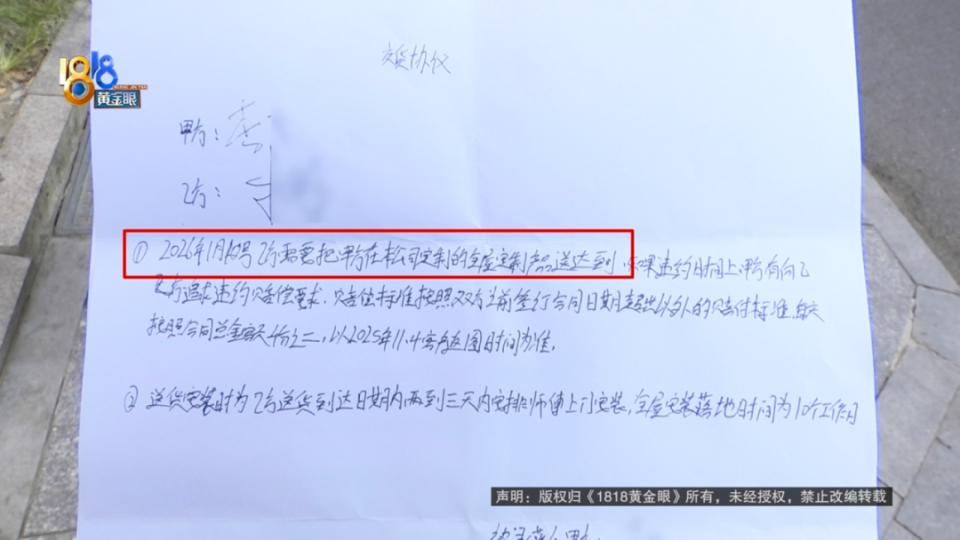 1818
黄金眼
交货协议
甲方：
乙方：
① 2026年1月10号乙方需要把甲方在本公司定制的全屋定制产品送达到，如果违约时间上甲方有向乙
乙方追求违约赔偿要求，赔偿标准按照双方之前签行合同日期超出以外的赔付标准，每天
按照合同总金额千份之二，以2025年11.4实际返图时间为准。
② 送货安装时为乙方送货到达日期内两到三天内安排师傅上门安装，全屋安装落地时间为10个工作日
声明：版权归《1818黄金眼》所有，未经授权，禁止改编转载